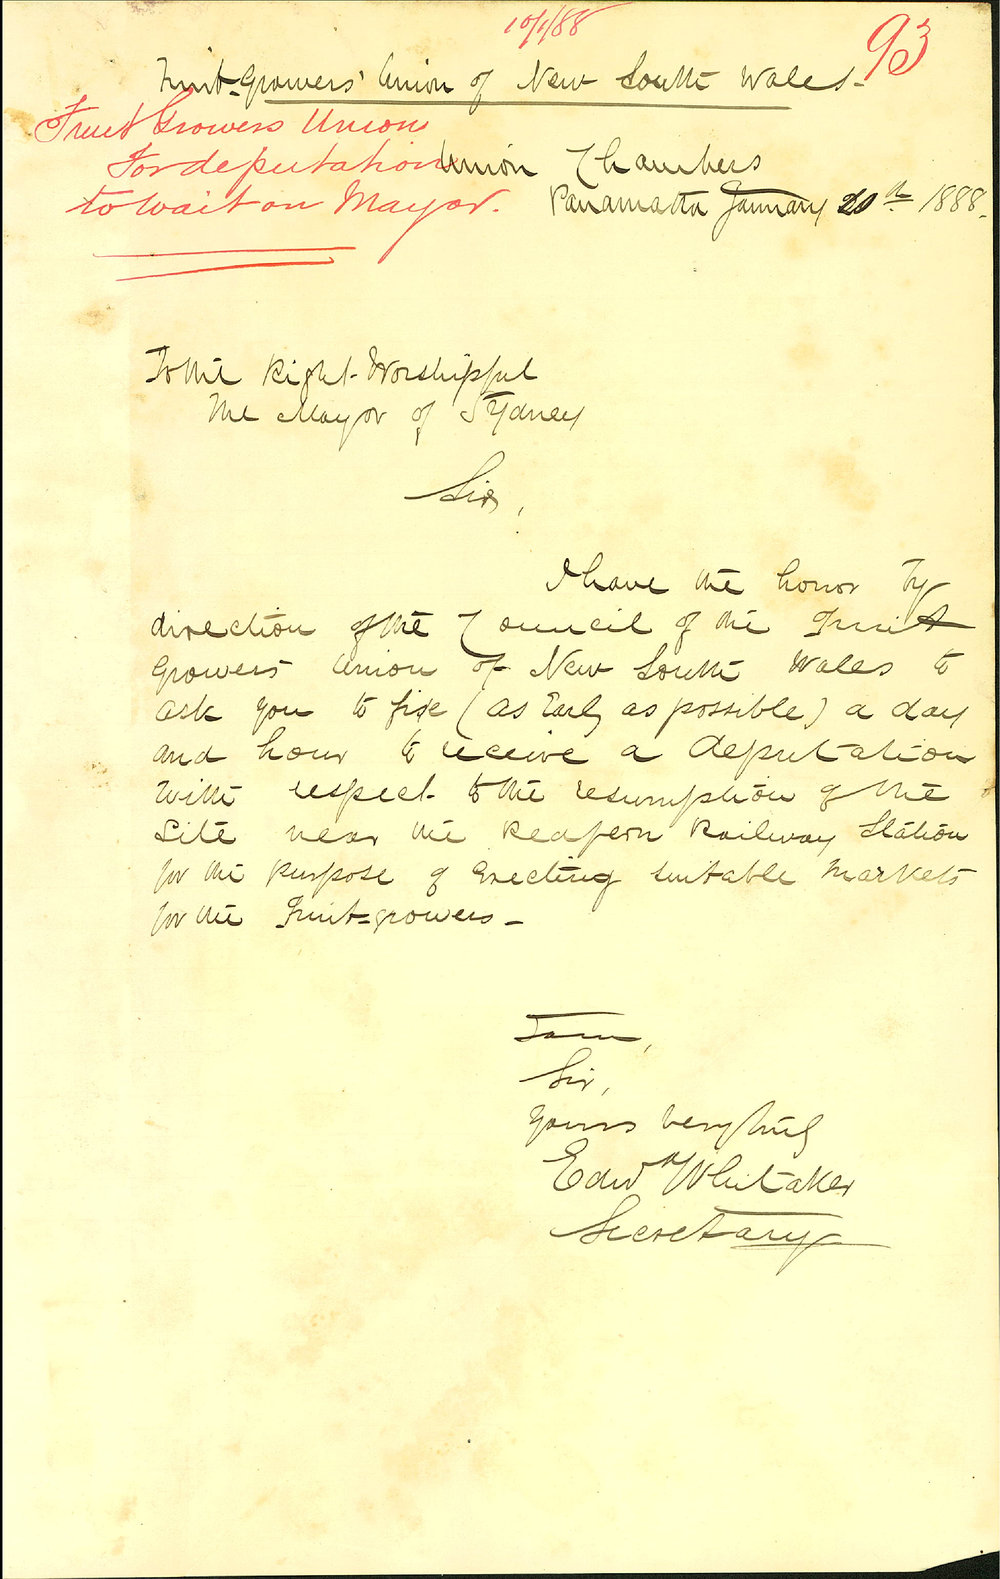 10/1/88
93
Fruit-Growers' Union of New South Wales-
Fruit Growers Union
For deputation
to wait on Mayor.
Union Chambers
Parramatta January 10th 1888.
To the Right Worshipful
The Mayor of Sydney
Sir,
I have the honor by
direction of the Council of the Fruit
Growers Union of New South Wales to
ask you to fix (as Early as possible) a day
and hour to receive a deputation
with respect to the resumption of the
Site near the Redfern Railway Station
for the purpose of Erecting suitable Markets
for the Fruit=growers-
I am,
Sir,
Yours very truly
Edwd Whitaker
Secretary